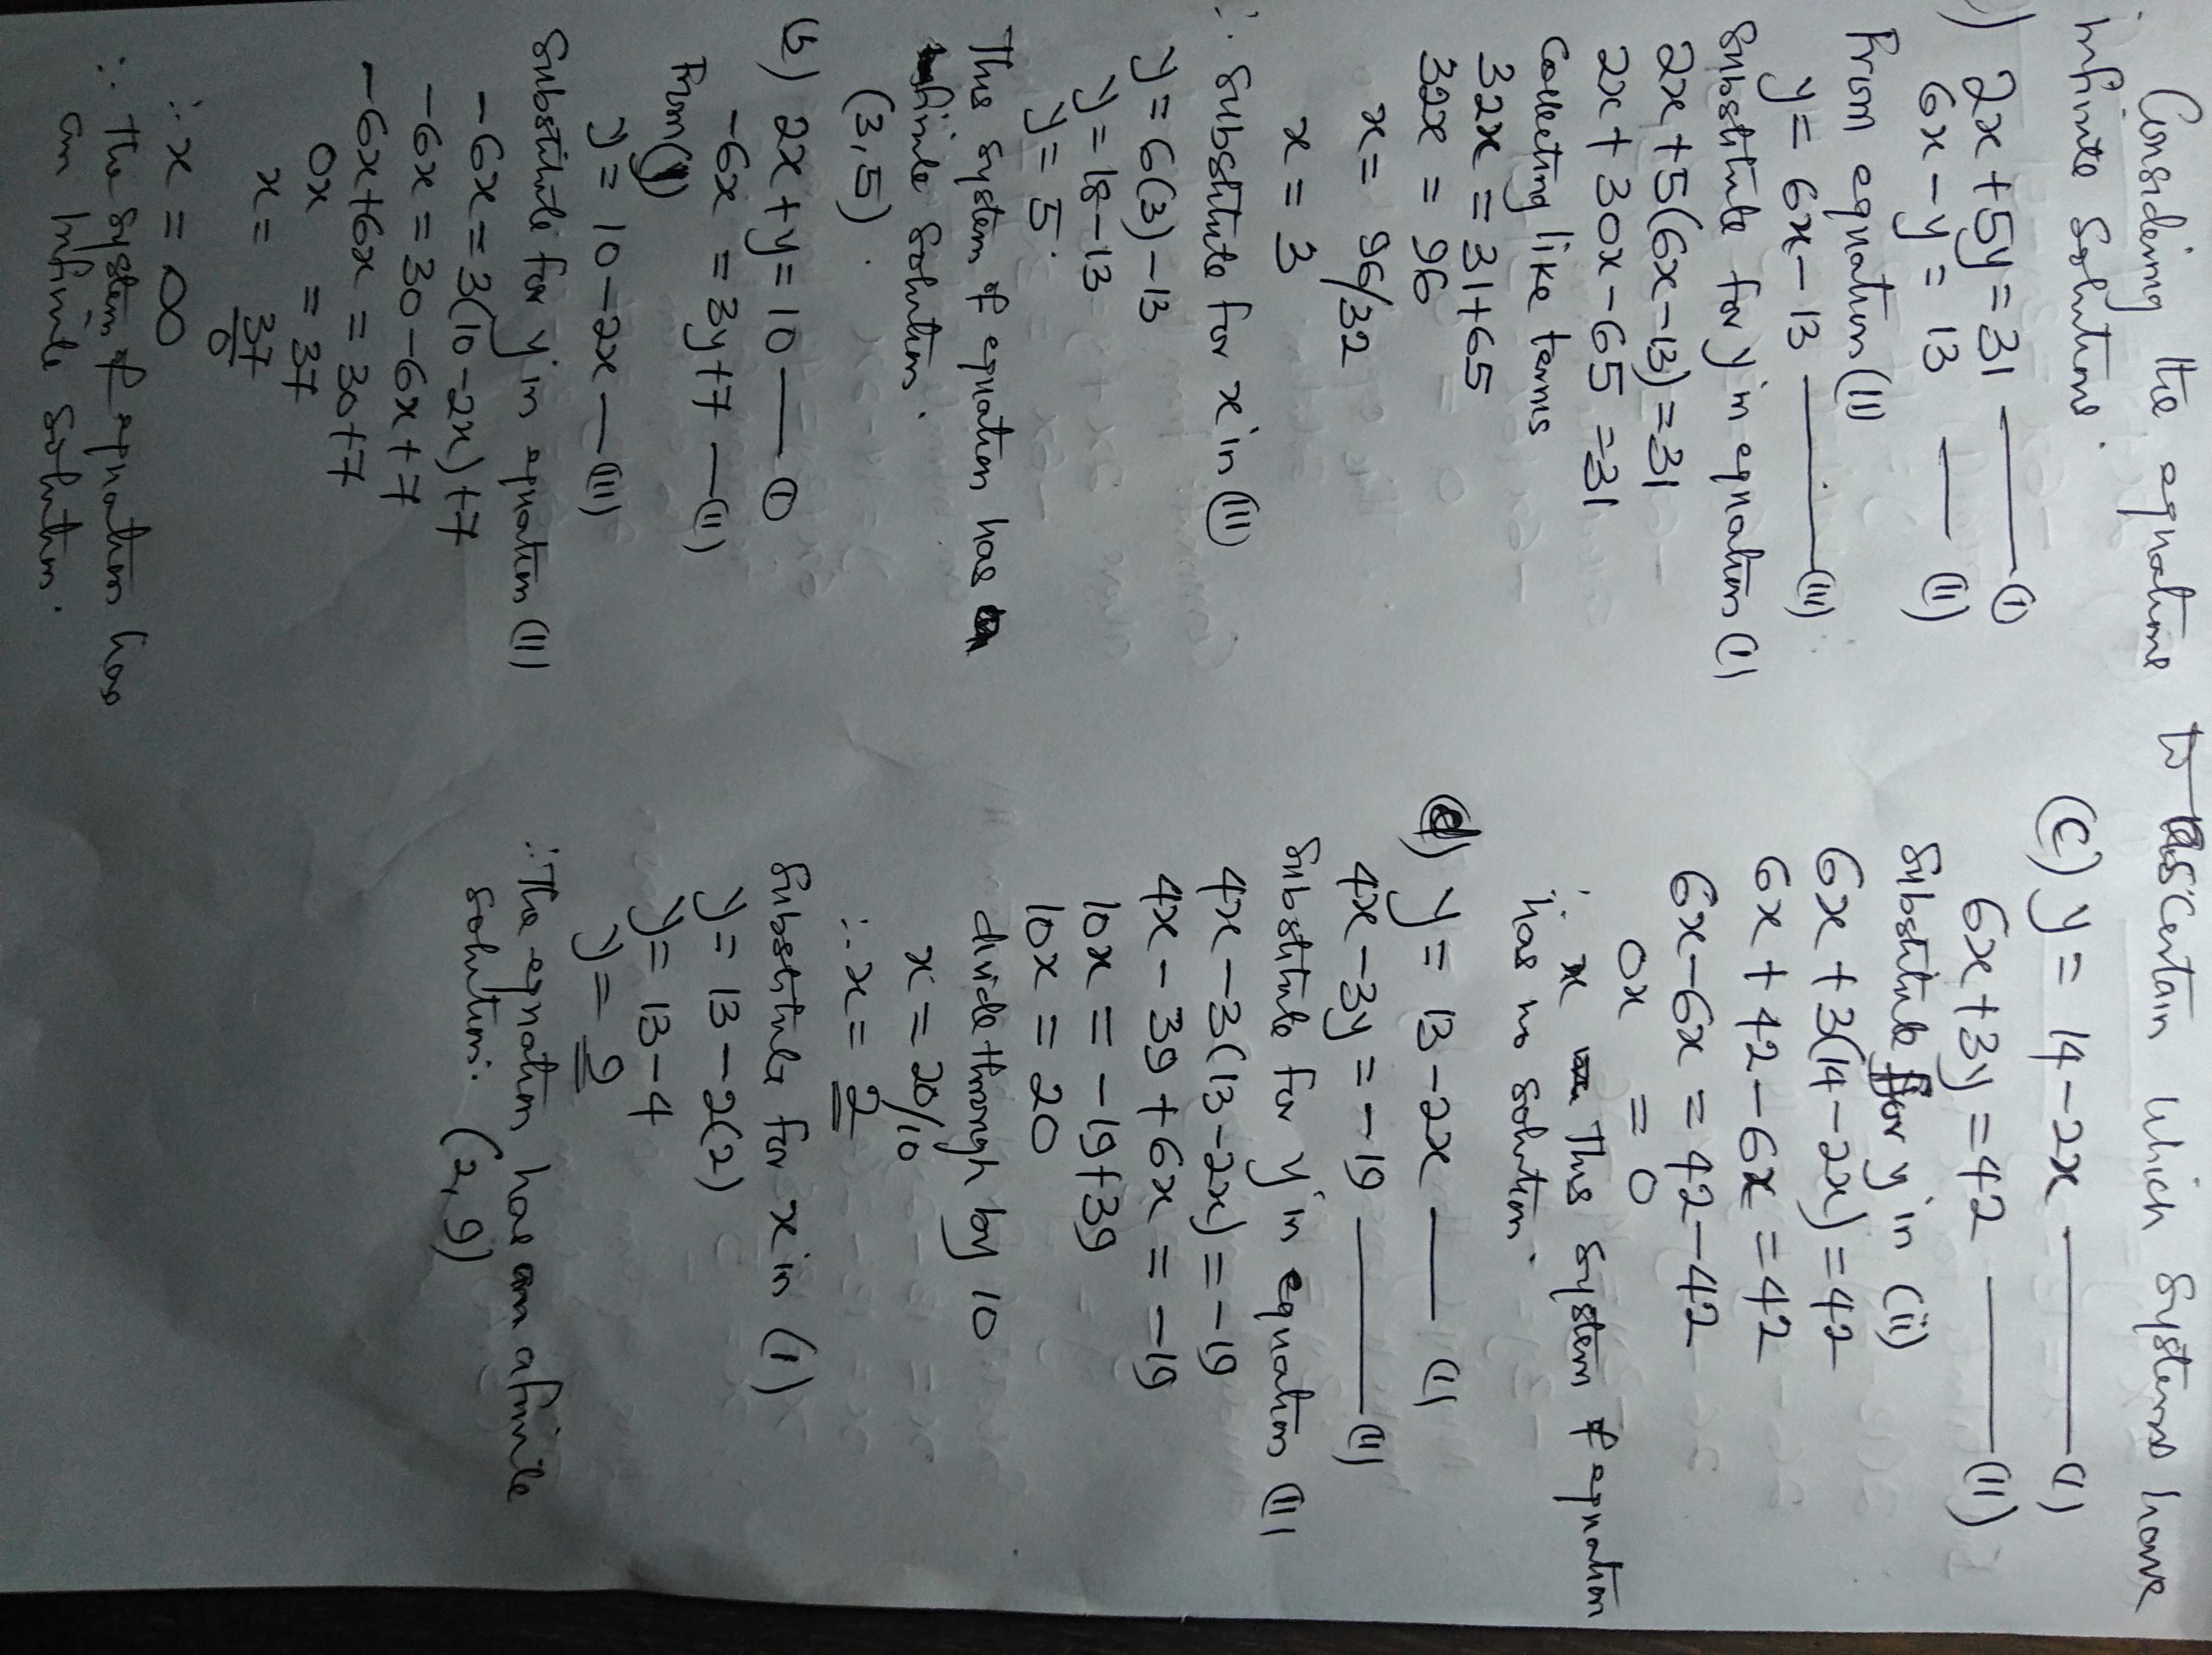 Considering the equations to ascertain which systems have
infinite solutions.
) 2x + 5y = 31 —— (I)
6x - y = 13 —— (II)
From equation (II)
y = 6x - 13 —— (III)
Substitute for y in equation (I)
2x + 5(6x - 13) = 31
2x + 30x - 65 = 31
Collecting like terms
32x = 31 + 65
32x = 96
x = 96/32
x = 3
∴ Substitute for x in (III)
y = 6(3) - 13
y = 18 - 13
y = 5.
This system of equation has
finite solution.
(3, 5).
(b) 2x + y = 10 —— (I)
-6x = 3y + 7 —— (II)
From (I)
y = 10 - 2x — (III)
Substitute for y in equation (II)
-6x = 3(10 - 2x) + 7
-6x = 30 - 6x + 7
-6x + 6x = 30 + 7
0x = 37
x = 37/0
∴ x = ∞
∴ The system of equation has
an infinite solution.
(C) y = 14 - 2x —— (I)
6x + 3y = 42 —— (II)
Substitute for y in (ii)
6x + 3(14 - 2x) = 42
6x + 42 - 6x = 42
6x - 6x = 42 - 42
0x = 0
∴ x This system of equation
has no solution.
(d) y = 13 - 2x —— (I)
4x - 3y = -19 —— (II)
Substitute for y in equation (II)
4x - 3(13 - 2x) = -19
4x - 39 + 6x = -19
10x = -19 + 39
10x = 20
divide through by 10
x = 20/10
∴ x = 2
Substitute for x in (I)
y = 13 - 2(2)
y = 13 - 4
y = 9
∴ The equation has an a finite
solution. (2, 9)